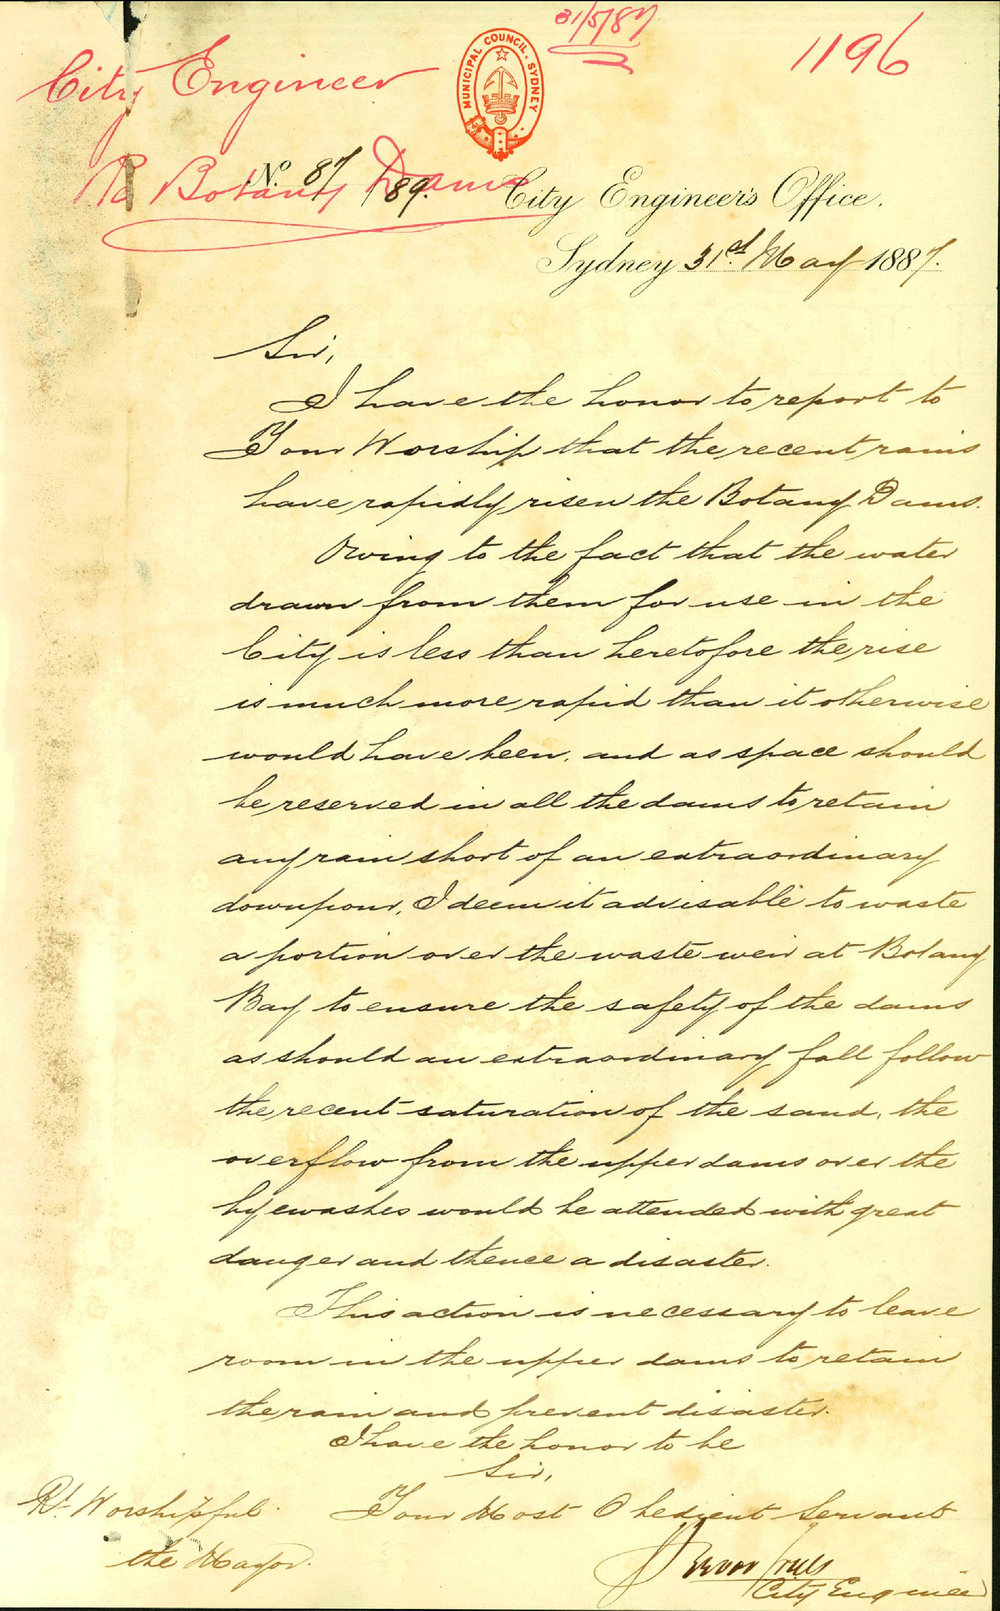 31/5/87
1196
City Engineer
MUNICIPAL COUNCIL, SYDNEY
Re Botany Dams
No. 87/89.
City Engineer's Office.
Sydney 31st May 1887.
Sir,
I have the honor to report to
Your Worship that the recent rains
have rapidly risen the Botany Dams.
Owing to the fact that the water
drawn from them for use in the
City is less than heretofore the rise
is much more rapid than it otherwise
would have been, and as space should
be reserved in all the dams to retain
any rain short of an extraordinary
downpour, I deem it advisable to waste
a portion over the waste weir at Botany
Bay to ensure the safety of the dams
as should an extraordinary fall follow
the recent saturation of the sand, the
overflow from the upper dams over the
byewashes would be attended with great
danger and thence a disaster.
This action is necessary to leave
room in the upper dams to retain
the rain and prevent disaster.
I have the honor to be
Sir,
Your Most Obedient Servant
Rt. Worshipful
the Mayor.
City Engineer